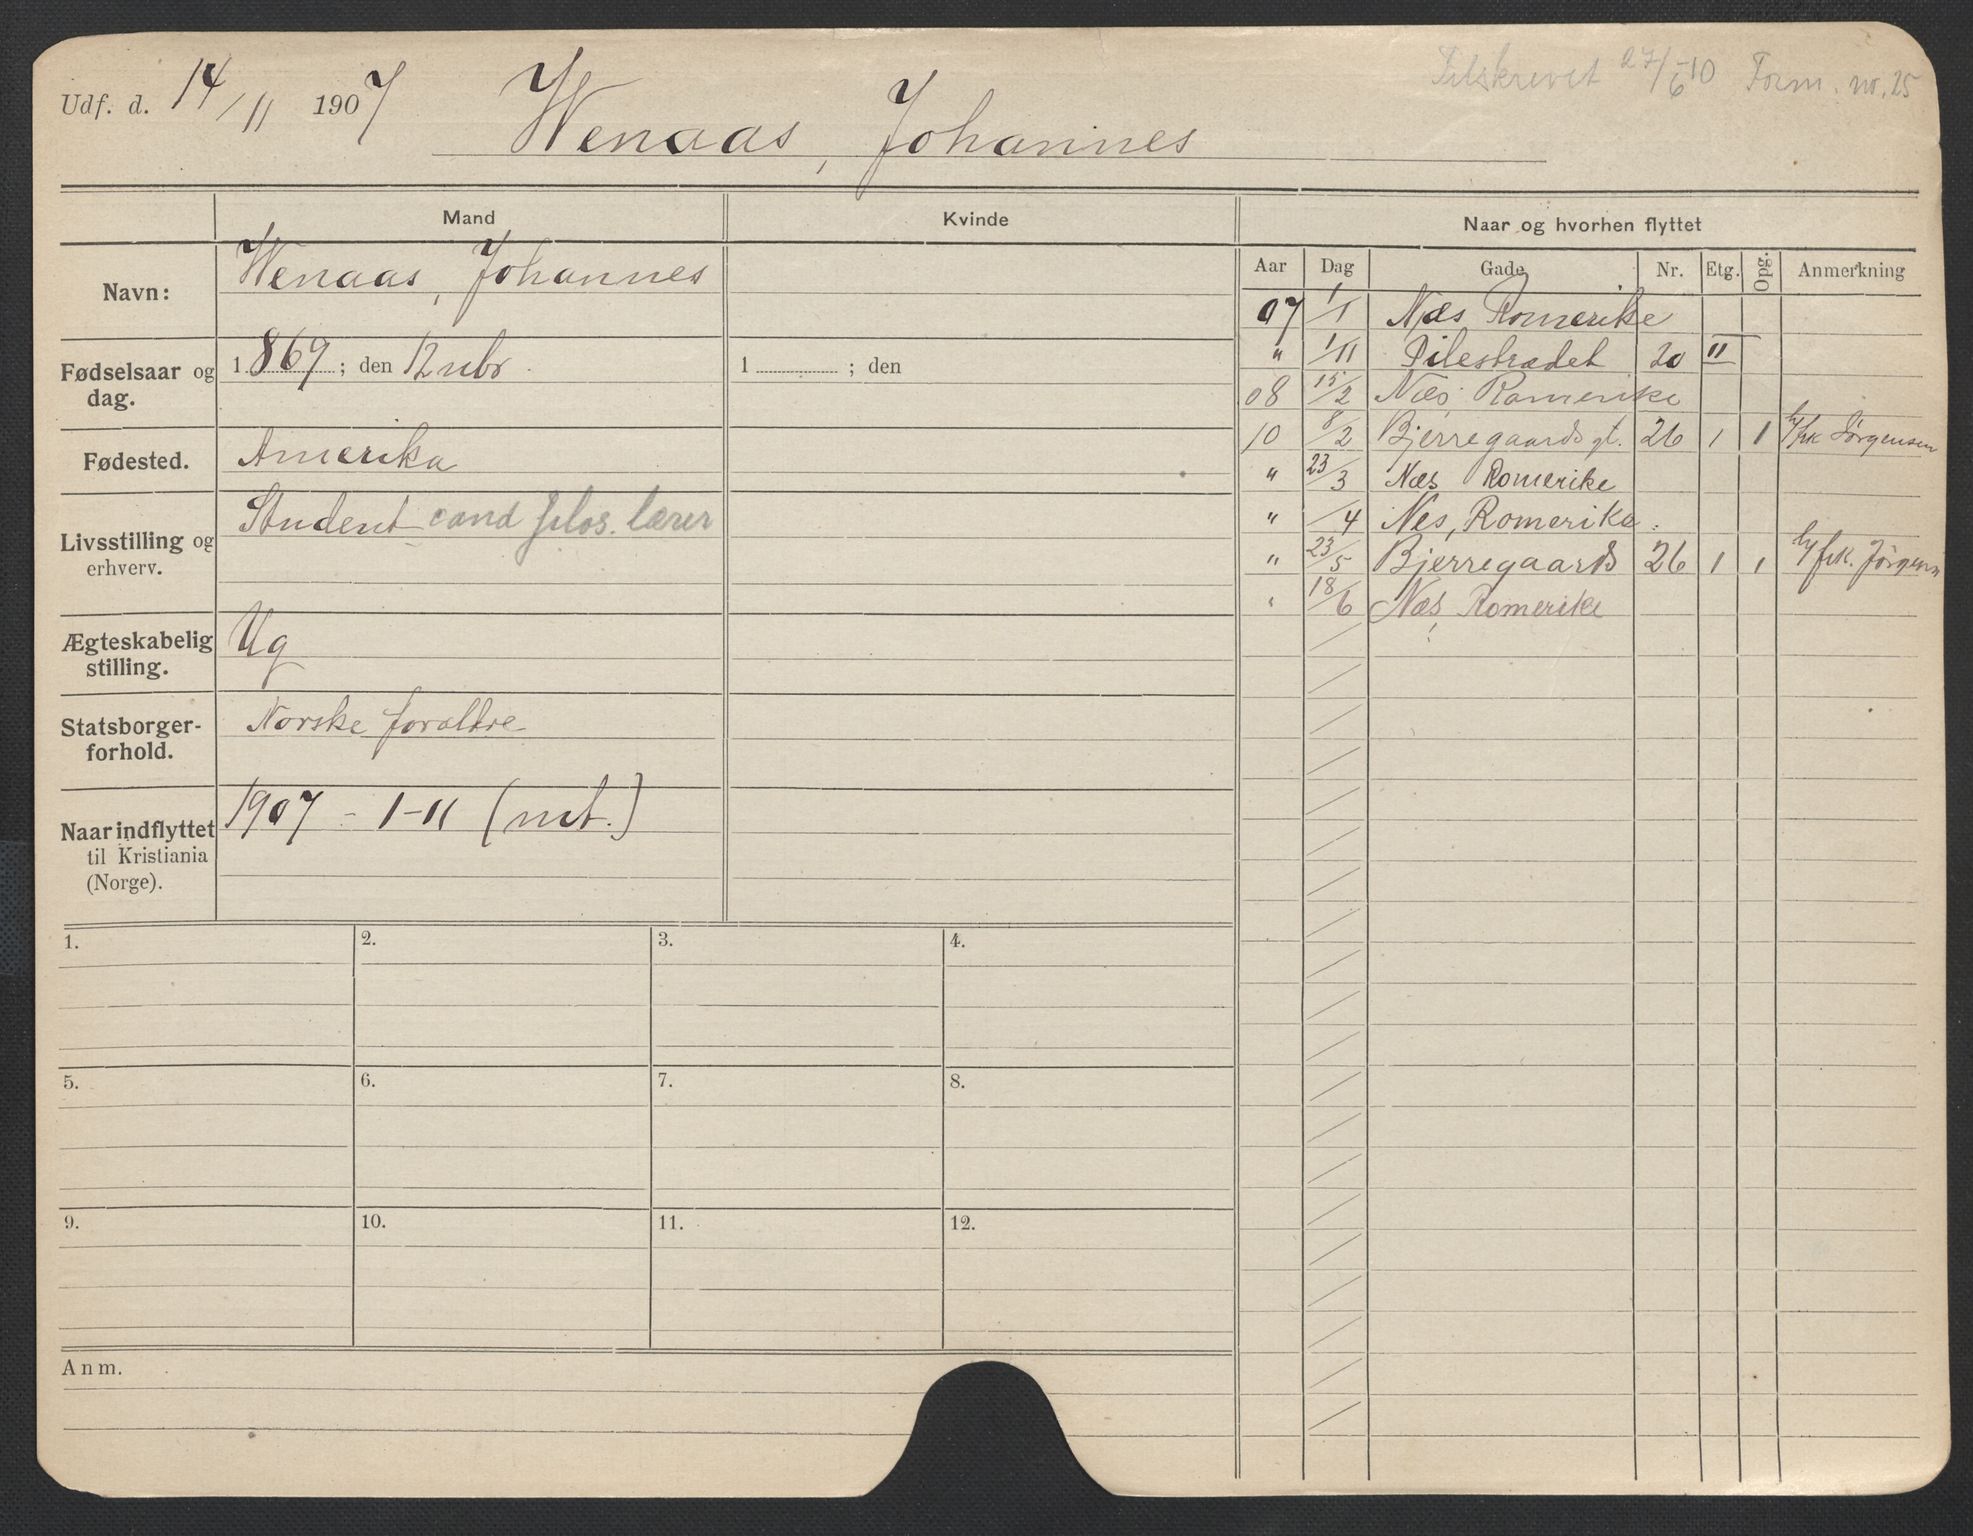 Udf. d. 14/11 1907 Wenaas, Johannes
Tilskrevet 27/6-10 Form. nr. 25
Mand
Kvinde
Naar og hvorhen flyttet
Navn:
Wenaas, Johannes
Fødselsaar og dag.
1869; den 12 nbr
1 ; den
Fødested.
Amerika
Livsstilling og erhverv.
Student cand filos. lærer
Ægteskabelig stilling.
Ug
Statsborger-forhold.
Norske forældre
Naar indflyttet til Kristiania (Norge).
1907 - 1-11 (mt.)
Aar Dag Gade Nr. Etg. Opg. Anmerkning
07 1/1 Næs Romerike
" 1/11 Pilestrædet 20 II
08 15/2 Næs Romerike
10 8/2 Bjerregaards gt. 26 1 1 h/frk Jørgensen
" 23/3 Næs Romerike
" /4 Nes, Romerike.
" 23/5 Bjerregaards 26 1 1 h/frk. Jørgensen
" 18/6 Næs, Romerike
1. 2. 3. 4.
5. 6. 7. 8.
9. 10. 11. 12.
Anm.